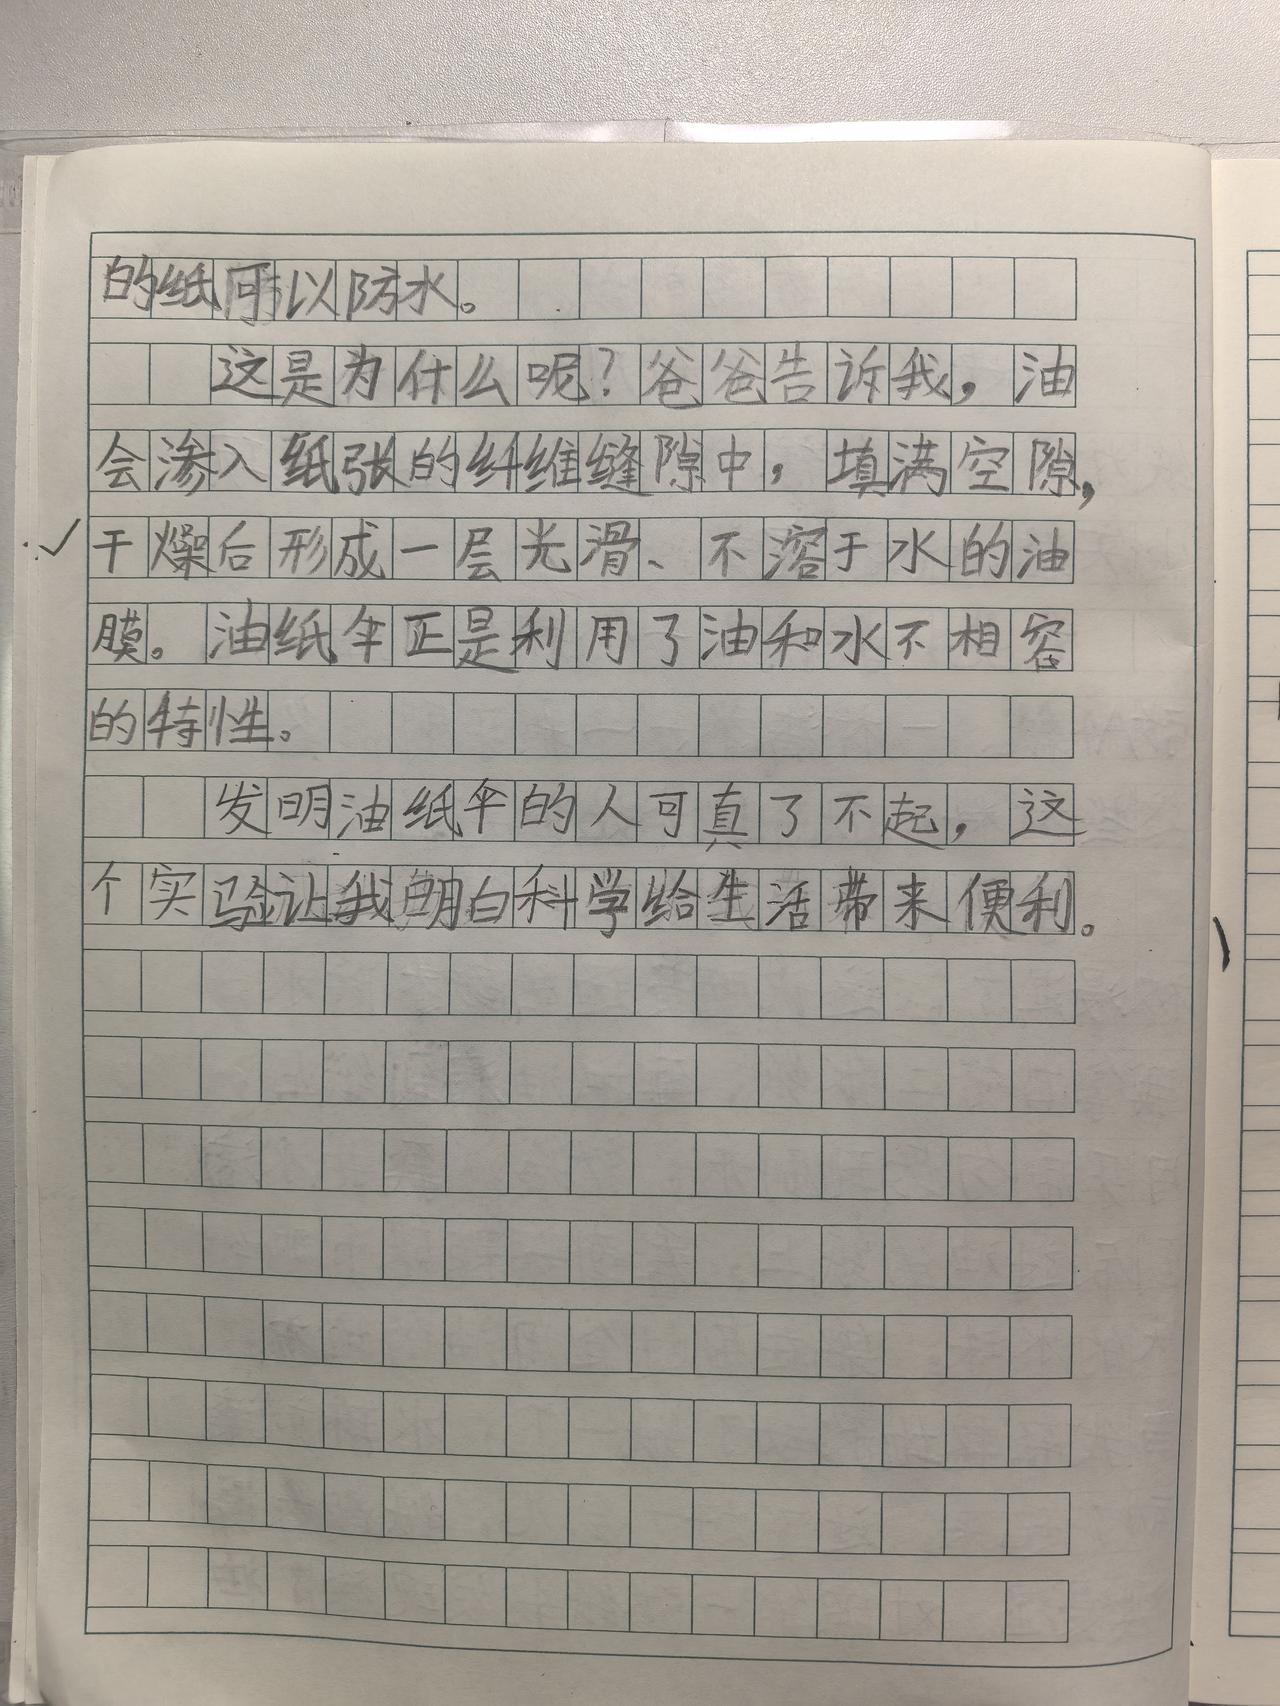 的纸可以防水。
这是为什么呢？爸爸告诉我，油
会渗入纸张的纤维缝隙中，填满空隙，
干燥后形成一层光滑、不溶于水的油
膜。油纸伞正是利用了油和水不相容
的特性。
发明油纸伞的人可真了不起，这
个实验让我明白科学给生活带来便利。